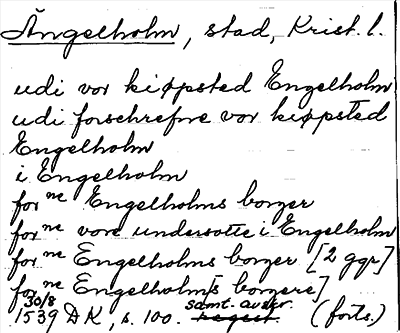 Ängelholm, stad, Krist. l.
udi vor kiøpsted Engelholm
udi forschrefne vor kiøpsted
Engelholm
i Engelholm
forne Engelholms borger
forne vore undersotte i Engelholm
forne Engelholms borger [2 ggr]
forne Engelholm[s borgere]
30/8 samt. avskr.
1539 DK, s. 100. regest. (forts.)